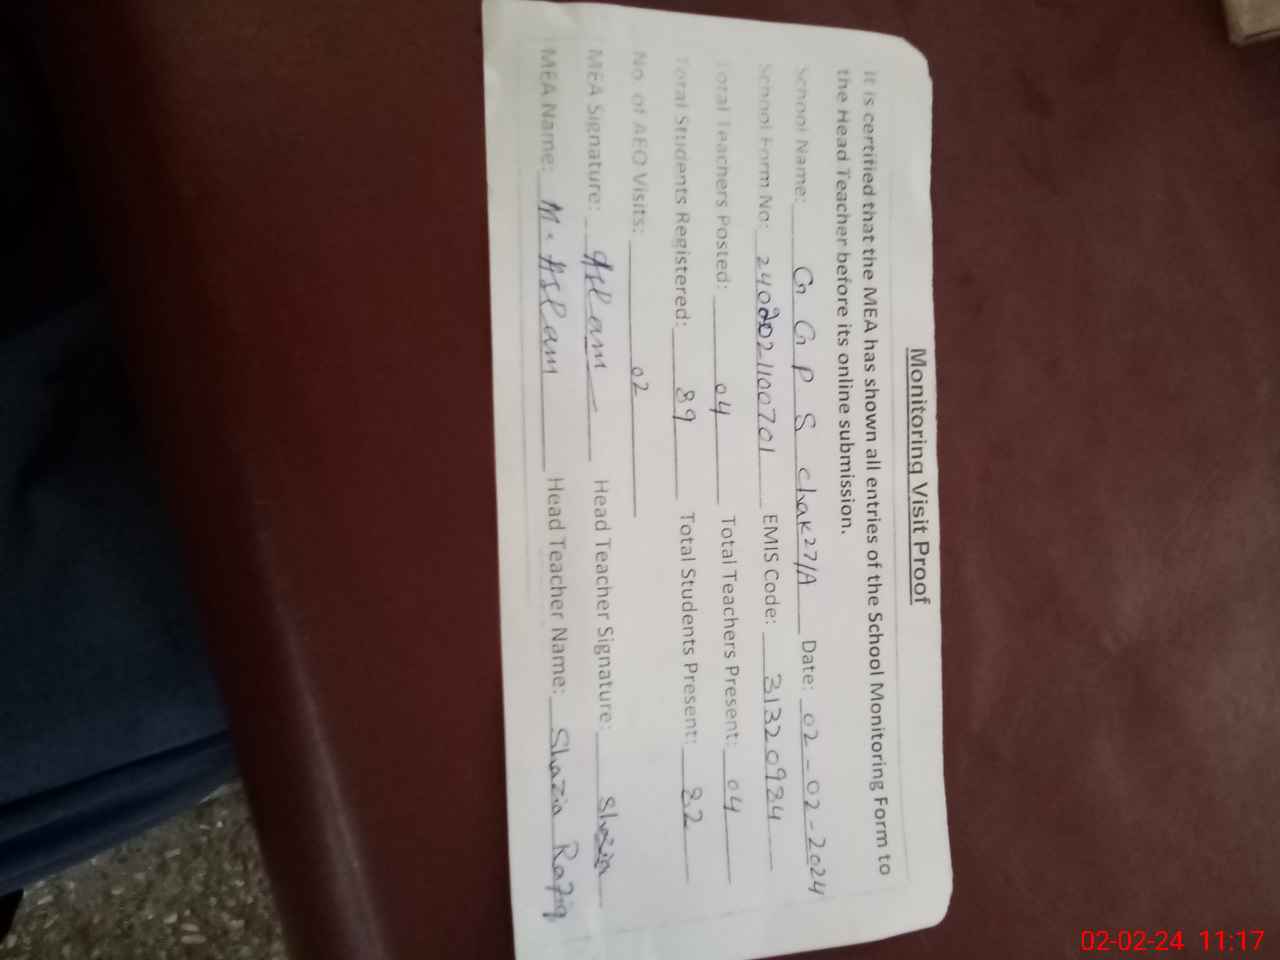 Monitoring Visit Proof
It is certified that the MEA has shown all entries of the School Monitoring Form to
the Head Teacher before its online submission.
School Name: G G P S chak 27/A Date: 02-02-2024
School Form No: 2402021100701 EMIS Code: 31320924
Total Teachers Posted: 04 Total Teachers Present: 04
Total Students Registered: 89 Total Students Present: 82
No. of AEO Visits: 02
MEA Signature: Aslam Head Teacher Signature: Shazia
MEA Name: M. Aslam Head Teacher Name: Shazia Rafiq
02-02-24 11:17